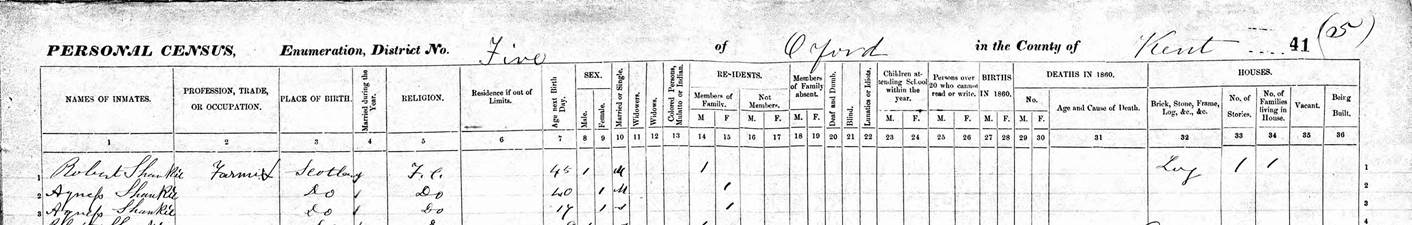 PERSONAL CENSUS, Enumeration, District No. Five of Oxford in the County of Kent 41 (25)
NAMES OF INMATES. PROFESSION, TRADE, OR OCCUPATION. PLACE OF BIRTH. Married during the Year. RELIGION. Residence if out of Limits. Age next Birth Day. SEX. Male. Female. Married or Single. Widowers. Widows. Colored Persons, Mulatto or Indian. RESIDENTS. Members of Family. M F Not Members. M. F. Members of Family absent. M. F. Deaf and Dumb. Blind. Lunatics or Idiots. Children attending School within the year. M. F. Persons over 20 who cannot read or write. M. F. BIRTHS IN 1860. M. F. DEATHS IN 1860. No. M. F. Age and Cause of Death. HOUSES. Brick, Stone, Frame, Log, &c., &c. No. of Stories. No. of Families living in House. Vacant. Being Built.
1 2 3 4 5 6 7 8 9 10 11 12 13 14 15 16 17 18 19 20 21 22 23 24 25 26 27 28 29 30 31 32 33 34 35 36
1 Robert Shankie Farmer Scotland F.C. 45 1 M 1 Log 1 1 1
2 Agness Shankie Do Do 40 1 M 1 2
3 Agness Shankie Do Do 17 1 S 1 3
4